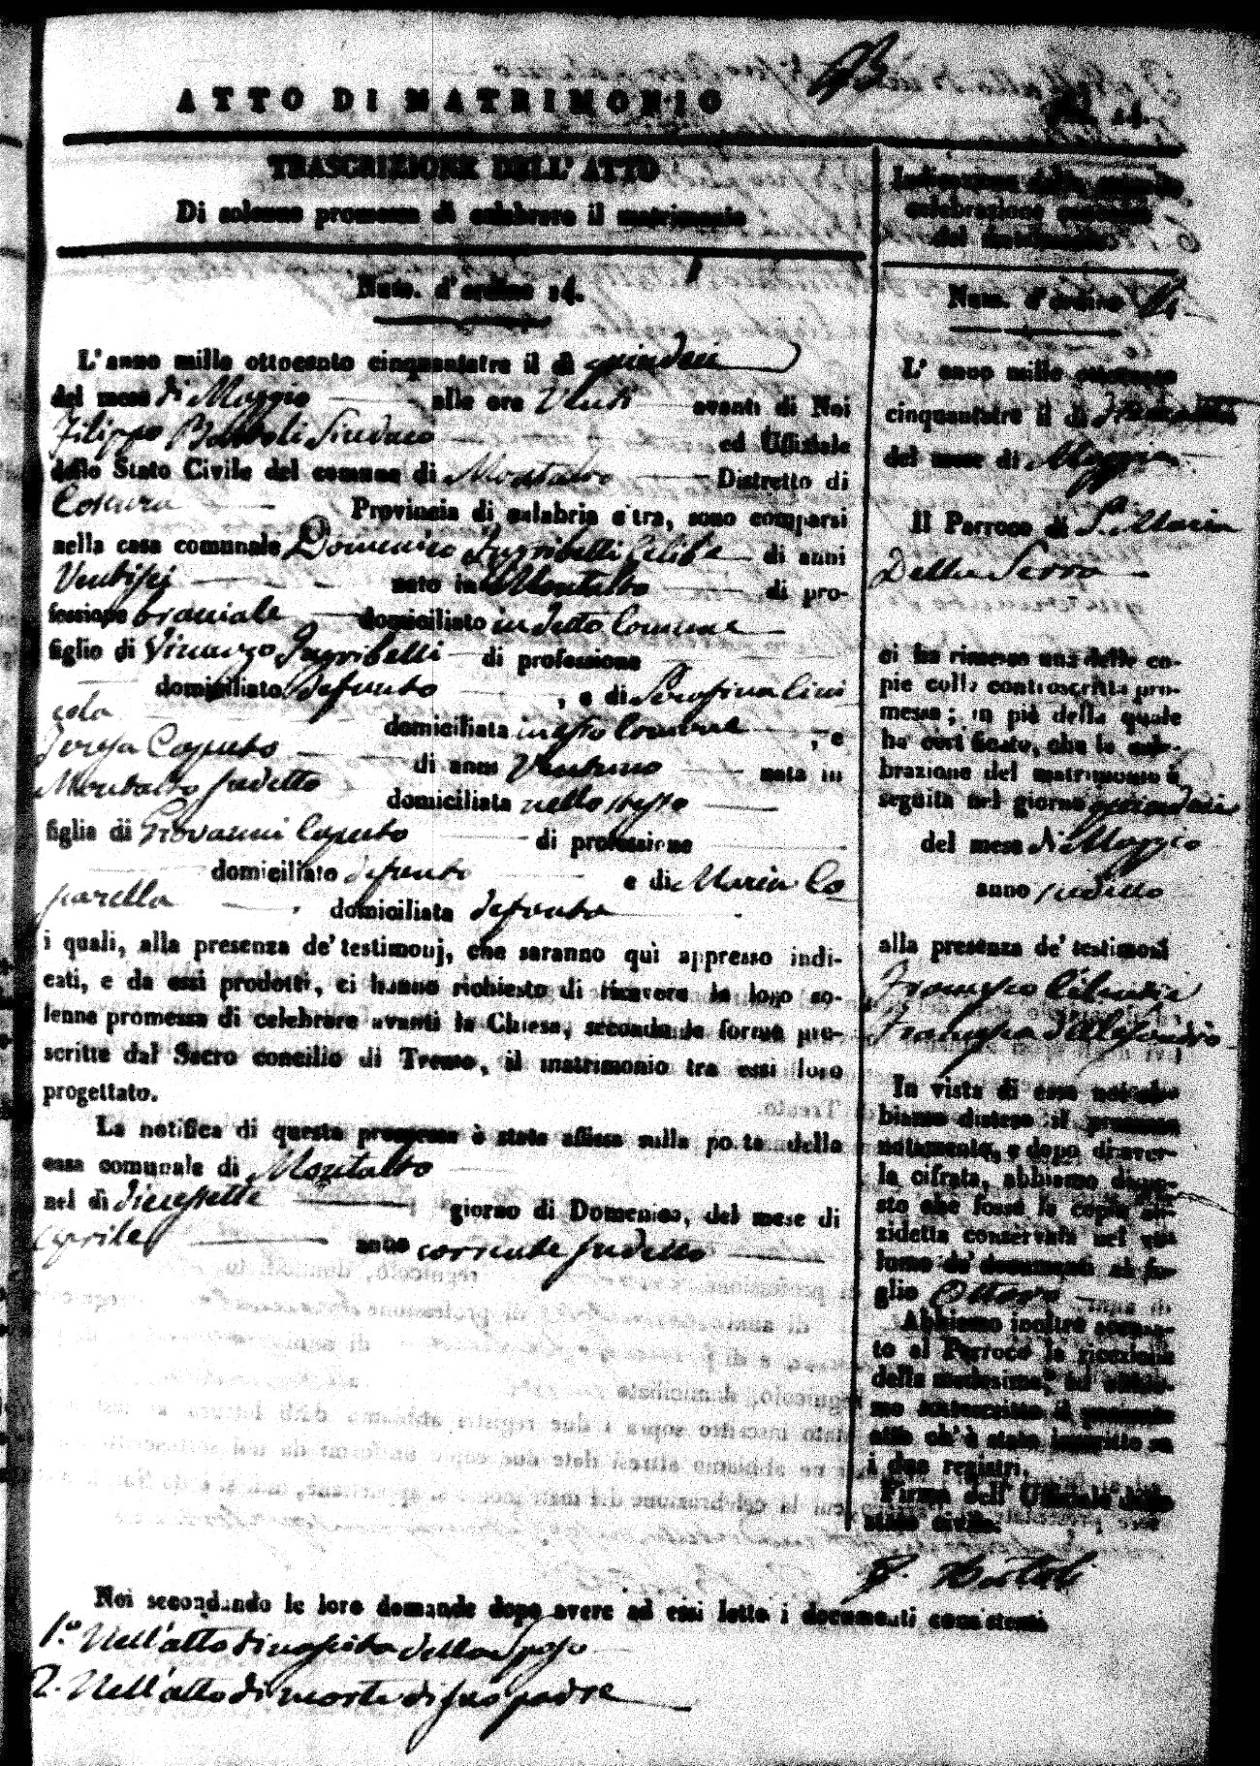 ATTO DI MATRIMONIO
TRASCRIZIONE DELL' ATTO
Di solenne promessa di celebrare il matrimonio
Num. d'ordine 14.
L'anno mille ottocento cinquantatre il dì quindeci
del mese di Maggio alle ore Venti avanti di Noi
Filippo Bartoli Sindaco ed Uffiziale
dello Stato Civile del comune di Montalto Distretto di
Cosenza Provincia di calabria citra, sono comparsi
nella casa comunale Domenico Ingribelli Celibe di anni
Ventisei nato in Montalto di pro-
fessione braciale domiciliato in detto Comune
figlio di Vincenzo Ingribelli di professione
domiciliato defunto , e di Serafina Cini
cola domiciliata in esso Comune , e
Teresa Caputo di anni Ventuno nata in
Montalto sudetto domiciliata nello stesso
figlia di Giovanni Caputo di professione
domiciliato defunto e di Maria Co
parella domiciliata defunta
i quali, alla presenza de' testimonj, che saranno quì appresso indi-
cati, e da essi prodotti, ci hanno richiesto di ricevere la loro so-
lenne promessa di celebrare avanti la Chiesa, secondo le forme pre-
scritte dal Sacro concilio di Trento, il matrimonio tra essi loro
progettato.
La notifica di questa promessa è stata affissa sulla porta della
casa comunale di Montalto
nel dì diecessette giorno di Domenica, del mese di
Aprile anno corrente sudetto
Noi secondando le loro domande dopo avere ad essi letto i documenti consistenti
1.° Nell'atto di nascita della Sposa
2. Nell'atto di morte di suo padre
Indicazione della seguita
celebrazione
del matrimonio
Num. d'ordine 14.
L' anno mille ottocento
cinquantatre il dì
del mese di Maggio
Il Parroco di S. Maria
Della Serra
ci ha rimesso una delle co-
pie colla controscritta pro-
messa; in piè della quale
ha certificato, che la cele-
brazione del matrimonio è
seguita nel giorno quindeci
del mese di Maggio
anno sudetto
alla presenza de' testimoni
Francesco
Francesco d'Alesandro
In vista di essa noi ab-
biamo disteso il presente
notamento, e dopo di aver-
la cifrata, abbiamo dispo-
sto che fosse la copia an-
zidetta conservata nel vo-
lume de' documenti al fo-
glio Ottavo
Abbiamo inoltre accusa-
to al Parroco la ricezione
della medesima, ed abbia-
mo sottoscritto il presente
atto ch' è stato inscritto su
i due registri.
Firma dell' Uffiziale dello
stato civile.
F. Bartoli